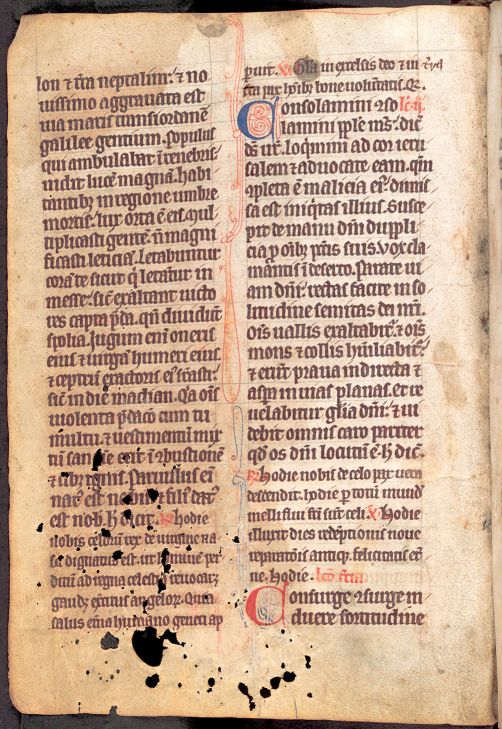 lon ⁊ t̃ra neptalim: ⁊ no
uissimo aggrauata est
uia maris transiordanẽ
galilee gentium. Populus
qui ambulabat ĩ tenebris
uidit lucẽ magnã. habi
tantibꝫ in regione umbre
mortis: lux orta ẽ eis. Mul
tiplicasti gentẽ. ⁊ ñ magni
ficasti leticiã. Letabuntur
corã te sicut q̃ letatur in
messe. sic̃ exultant uicto
res capta p̃da. qñ diuidũt
spolia. Jugum eni oneris
eius ⁊ uirgã humeri eius
⁊ sceptrũ exactoris eiꝰ supasti:
sic̃ in die madian. Qa oĩs
uiolenta p̃datio cum tu
multu. ⁊ uestimentũ mix
tũ sanguine erit ĩ ꝯbustionẽ
⁊ cibꝫ ignis. Paruulus eñ
natꝰ est nobis ⁊ filiꝰ datꝰ
est nob̃. h̃ dicit. ℟ hodie
nobis celorũ rex de uirgine na
sci dignatus est. ut hominẽ per
ditũ ad regna celestia reuocaret̃
gaudꝫ exercitus angeloꝝ. Quia
salus et̃na humano generi ap
paruit. ℣ Gl̃a in excelsis deo ⁊ in t̃ra
pax hoĩbꝫ bone uoluntatis. Q̃.
Consolamini ꝯso lc̃ .ij.
lamini pp̃le mꝰs. dic̃
dñs ur̃. Loq̃mini ad cor ieru
salem ⁊ aduocate eam. qm̃
ꝯpleta ẽ malicia eiꝰ. dimis
sa est iniq̃tas illius. Susce
pit de manu dñi dupli
cia ꝑ oĩbꝫ pctis suis. Vox cla
mantis ĩ deserto. Parate ui
am dñi: rectas facite in so
litudine semitas dei nr̃i.
Oĩs uallis exaltabit̃. ⁊ oĩs
mons ⁊ collis humiliabit̃.
⁊ erũt praua in directa ⁊
aspera in uias planas. Et re
uelabitur gl̃ia dñi. ⁊ ui
debit omnis caro pariter
qd̃ os dñi locutũ ẽ. h̃ dic̃.
℟ hodie nobis de celo pax uera
descendit. hodie ꝑ totũ mundũ
melliflui fc̃i sunt celi. ℣ hodie
illuxit dies redẽptionis noue
reparatõis antiq̃. felicitatis et̃
ne. hodie. Lc̃o t̃cia
Consurge ꝯsurge in
duere fortitudine